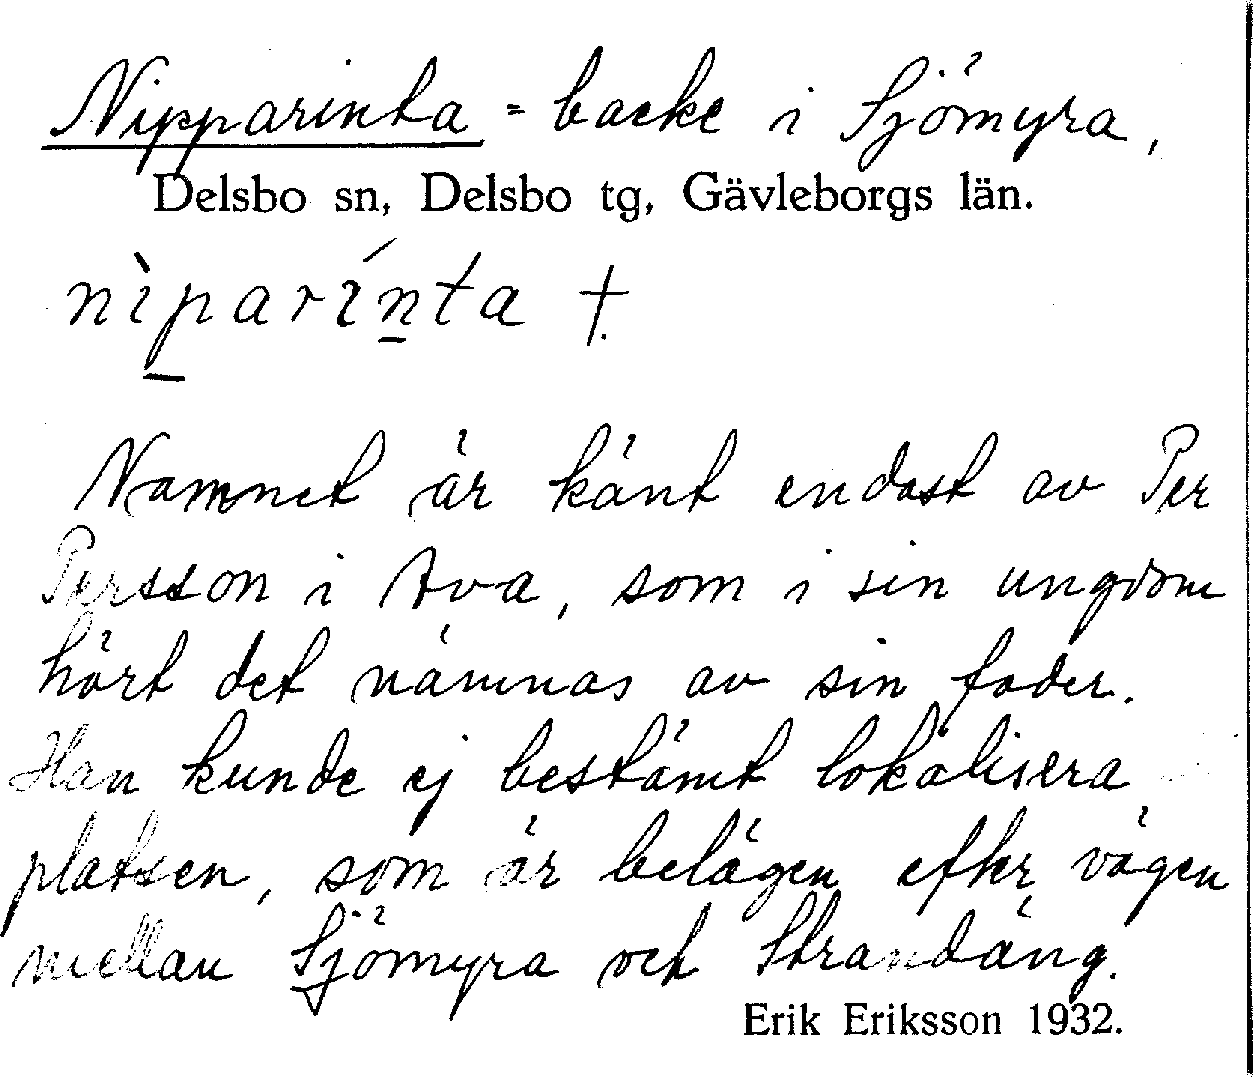 Nipparinta = backe i Sjömyra,
Delsbo sn, Delsbo tg, Gävleborgs län.
nìparínta †.
Namnet är känt endast av Per
Persson i Ava, som i sin ungdom
hört det nämnas av sin fader.
Han kunde ej bestämt lokalisera
platsen, som är belägen efter vägen
mellan Sjömyra och Strandäng.
Erik Eriksson 1932.